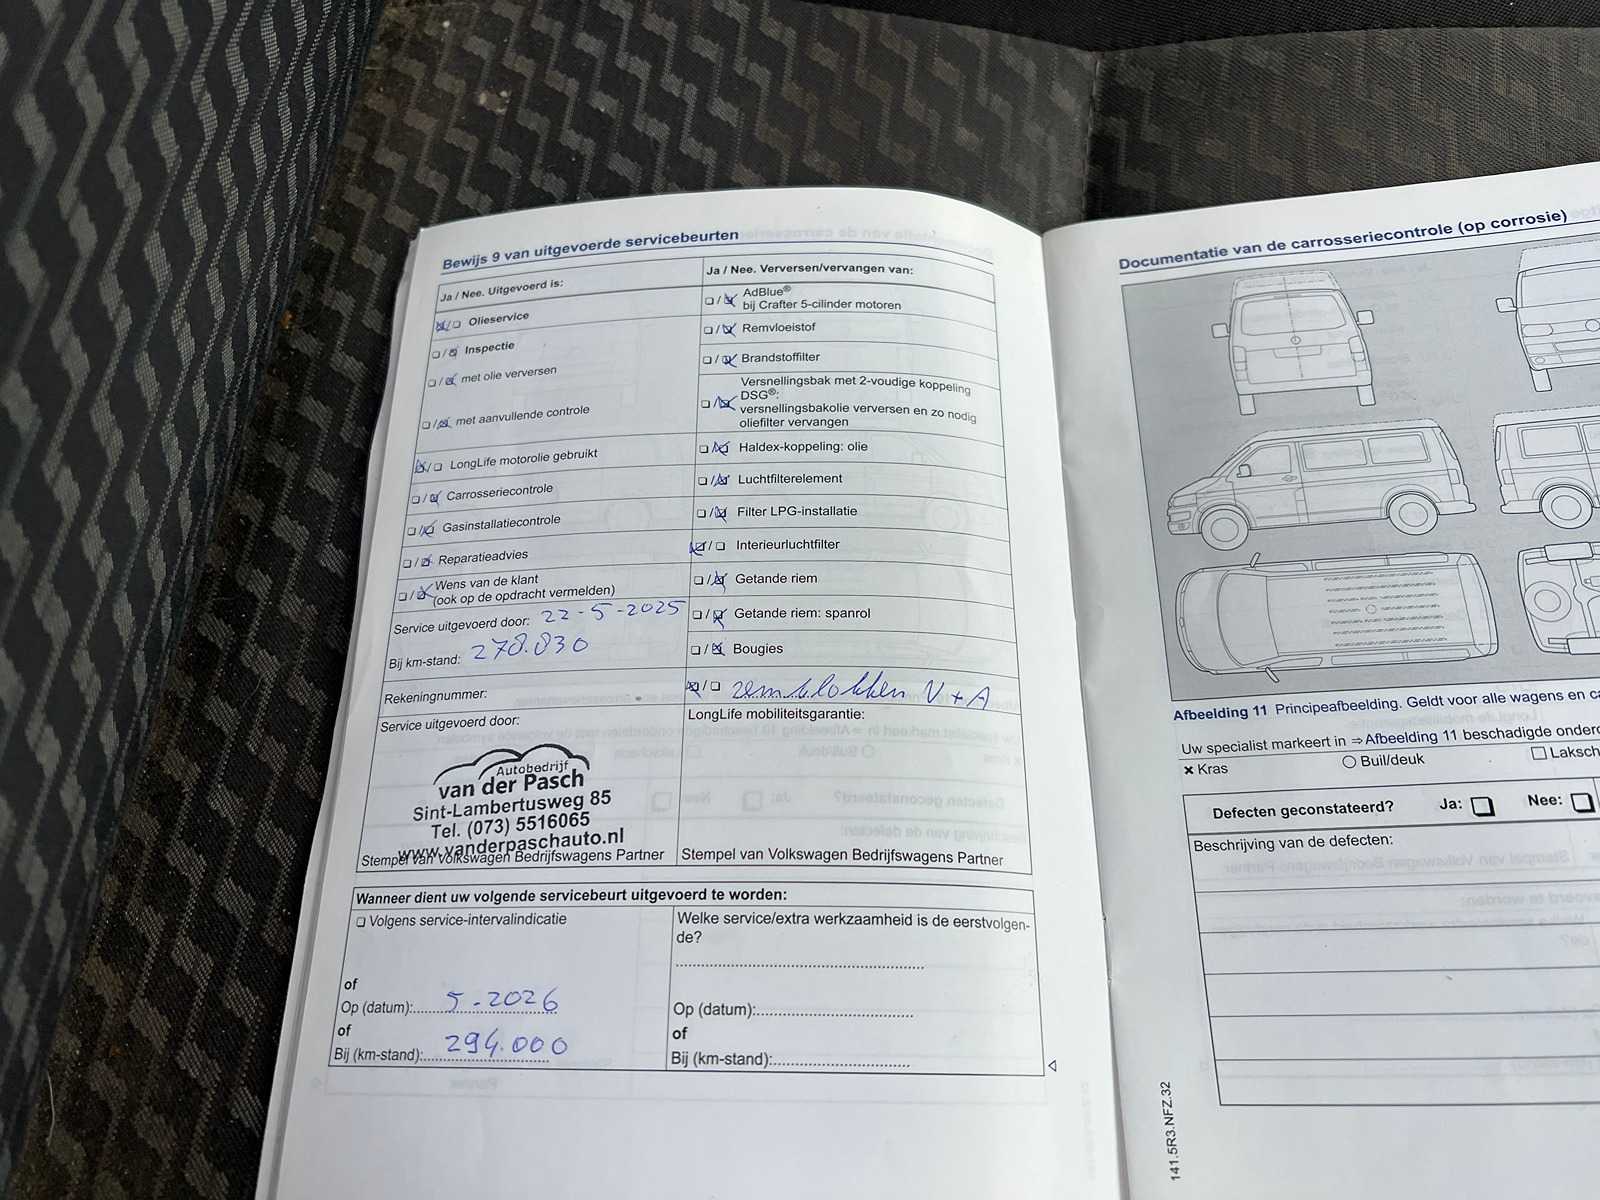 Bewijs 9 van uitgevoerde servicebeurten
Ja / Nee. Uitgevoerd is:
Olieservice
Inspectie
met olie verversen
met aanvullende controle
LongLife motorolie gebruikt
Carrosseriecontrole
Gasinstallatiecontrole
Reparatieadvies
Wens van de klant
(ook op de opdracht vermelden)
Service uitgevoerd door: 22-5-2025
Bij km-stand: 278.830
Rekeningnummer:
Service uitgevoerd door:
Autobedrijf
van der Pasch
Sint-Lambertusweg 85
Tel. (073) 5516065
www.vanderpaschauto.nl
Stempel van Volkswagen Bedrijfswagens Partner
Ja / Nee. Verversen/vervangen van:
AdBlue®
bij Crafter 5-cilinder motoren
Remvloeistof
Brandstoffilter
Versnellingsbak met 2-voudige koppeling
DSG®:
versnellingsbakolie verversen en zo nodig
oliefilter vervangen
Haldex-koppeling: olie
Luchtfilterelement
Filter LPG-installatie
Interieurluchtfilter
Getande riem
Getande riem: spanrol
Bougies
remblokken V + A
LongLife mobiliteitsgarantie:
Stempel van Volkswagen Bedrijfswagens Partner
Wanneer dient uw volgende servicebeurt uitgevoerd te worden:
Volgens service-intervalindicatie
of
Op (datum): 5-2026
of
Bij (km-stand): 294.000
Welke service/extra werkzaamheid is de eerstvolgen-
de?
Op (datum):
of
Bij (km-stand):
Documentatie van de carrosseriecontrole (op corrosie)
Afbeelding 11 Principeafbeelding. Geldt voor alle wagens en
Uw specialist markeert in ⇒ Afbeelding 11 beschadigde
× Kras
Buil/deuk
Defecten geconstateerd? Ja: Nee:
Beschrijving van de defecten:
141.5R3.NFZ.32